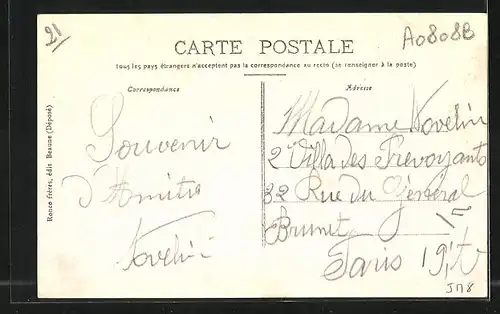 21
A0808B
CARTE POSTALE
Tous les pays étrangers n'acceptent pas la correspondance au recto (se renseigner à la poste)
Correspondance
Adresse
Souvenir
d'Amitié
Madame
2 Villa des Prevoyants
32 Rue du Général
Brunet
Paris 19
JM8
Ronco frères, édit Beaune (Déposé)